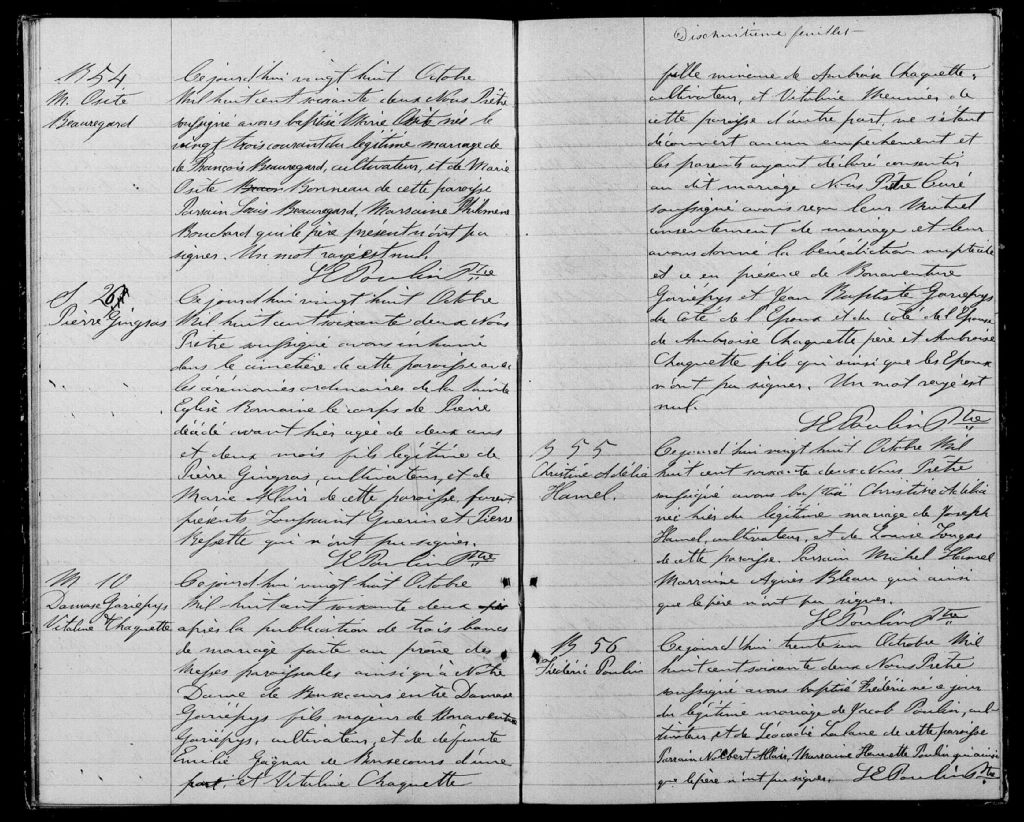 B 54
M. Osite
Beauregard
Ce jourd'hui vingt huit Octobre
Mil huit cent soixante deux Nous Prêtre
soussigné avons baptisé Marie Osite née le
vingt trois courant du légitime mariage de
de François Beauregard, cultivateur, et de Marie
Osite Bonneau de cette paroisse
Parrain Louis Beauregard, Marraine Philomene
Bouchard qui le père présent n'ont pu
signer. Un mot rayé est nul.
Ptre
S. 26
Pierre Gingras
Ce jourd'hui vingt huit Octobre
Mil huit cent soixante deux Nous
Prêtre soussigné avons inhumé
dans le cimetière de cette paroisse avec
les cérémonies ordinaires de la Sainte
Eglise Romaine le corps de Pierre
décédé avant hier agée de deux ans
et deux mois fils légitime de
Pierre Gingras, cultivateur, et de
Marie Allair de cette paroisse, furent
présents Toussaint Guerin et Pierre
Bessette qui n'ont pu signer.
Ptre
M. 10
Damase Gariépys
Vitaline Chaquette
Ce jourd'hui vingt huit Octobre
Mil huit cent soixante deux
après la publication de trois bancs
de mariage faite au prône des
Messes paroissiales ainsi qu'à Notre
Dame de Bonsecours entre Damase
Gariépys fils majeur de Bonaventure
Gariépys, cultivateur, et de défunte
Emilie Gagnon de Bonsecours d'une
part, et Vitaline Chaquette
Dixhuitième feuillet
fille mineure de Ambroise Chaquette,
cultivateur, et Vitaline Meunier de
cette paroisse d'autre part, ne s'étant
découvert aucun empêchement et
les parents ayant déclaré consentir
au dit mariage Nous Prêtre Curé
soussigné avons reçu leur Mutuel
consentement de mariage et leur
avons donné la bénédiction nuptiale
et ce en présence de Bonaventure
Gariépys et Jean Baptiste Gariépys
du côté de l'Epoux et du côté de l'Epouse
de Ambroise Chaquette père et Ambroise
Chaquette fils qui ainsi que les Epoux
n'ont pu signer. Un mot rayé est
nul.
Ptre
B 55
Christine Adélia
Hamel.
Ce jourd'hui vingt huit Octobre Mil
huit cent soixante deux Nous Prêtre
soussigné avons baptisé Christine Adélia
née hier du légitime mariage de Joseph
Hamel, cultivateur, et de Louise
de cette paroisse. Parrain Michel Hamel
Marraine Agnes Bleau qui ainsi
que le père n'ont pu signer.
Ptre
B 56
Frédéric Poulin
Ce jourd'hui trente un Octobre Mil
huit cent soixante deux Nous Prêtre
soussigné avons baptisé Frédéric né ce jour
du légitime mariage de Jacob Poulin, cul-
tivateur, et de Léocadie Lalane de cette paroisse
Parrain Norbert Allair, Marraine Henriette Poulin qui ainsi
que le père n'ont pu signer. Ptre